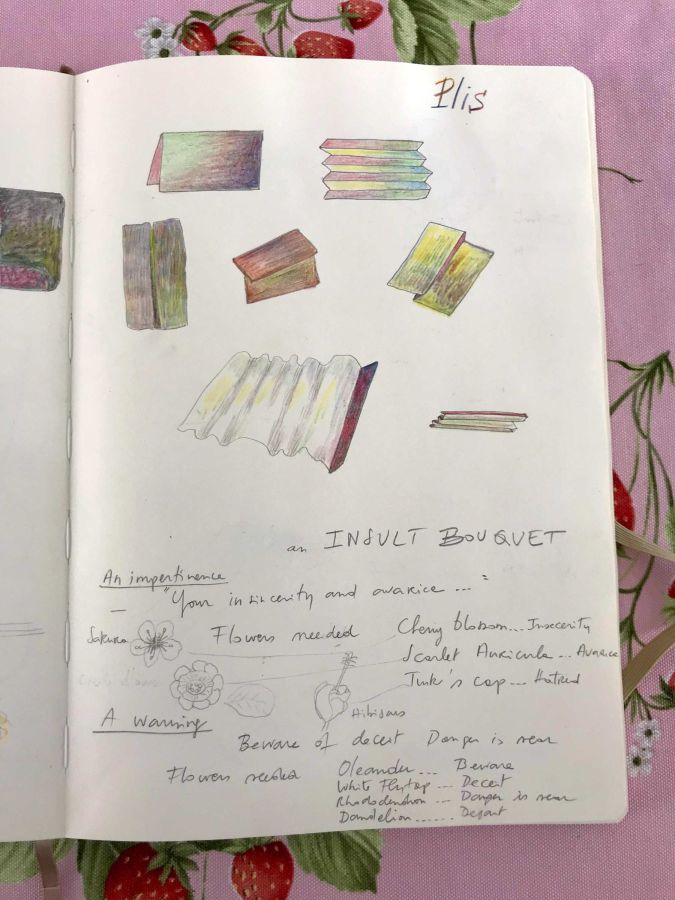 Plis
an INSULT BOUQUET
An impertinence
"Your insincerity and avarice ..."
Sakura
Flowers needed
Cherry blossom... Insecerity
Scarlet Auricula ... Avarice
Turk's cap ... Hatred
Hibiscus
A warning
Beware of deceit Danger is near
Flowers needed
Oleander ... Beware
White Flytrap ... Deceit
Rhododendron ... Danger is near
Dandelion ......